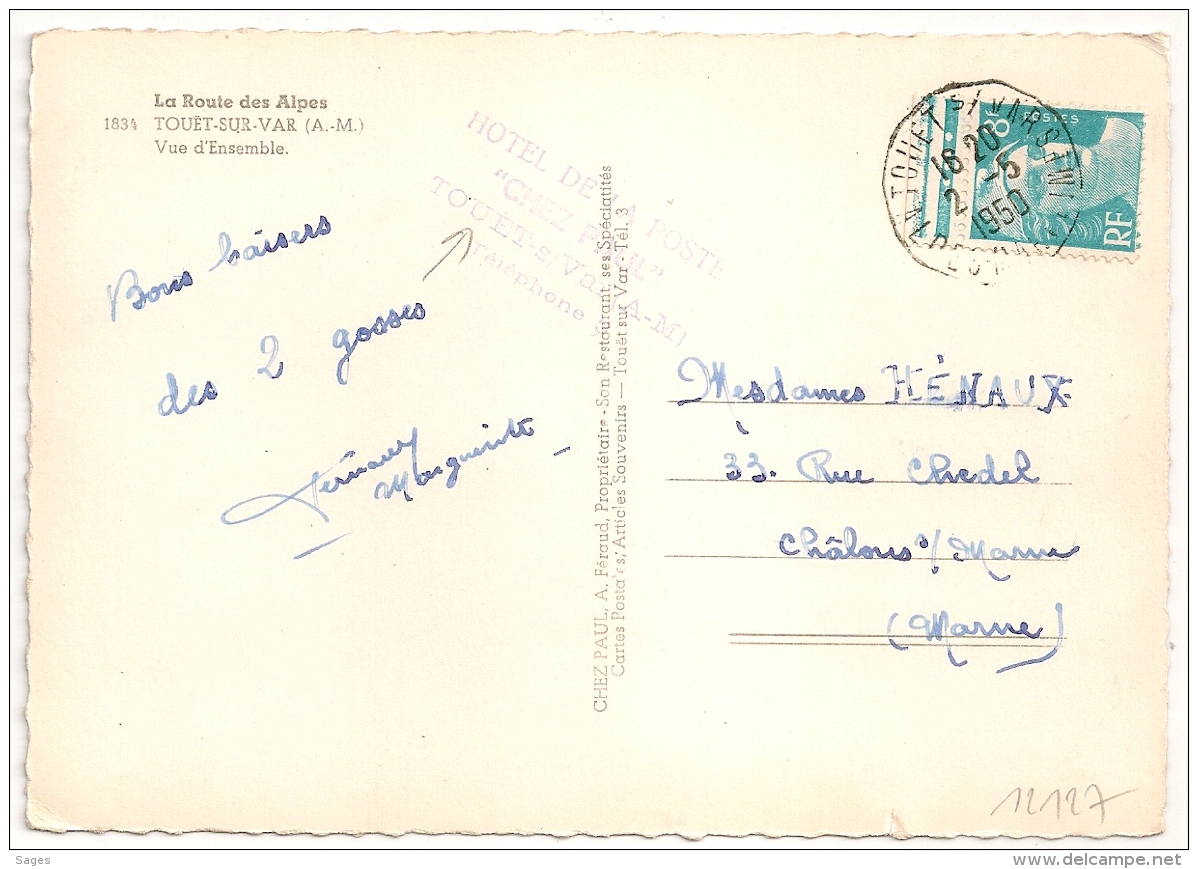 La Route des Alpes
1834 TOUËT-SUR-VAR (A.-M.)
Vue d'Ensemble.
HOTEL DE LA POSTE
"CHEZ PAUL"
TOUËT-s/Var (A-M)
Téléphone 3
Bons baisers
des 2 gosses
Marguerite
CHEZ PAUL, A. Féraud, Propriétaire - Son Restaurant, ses Spécialités
Cartes Postales, Articles Souvenirs — Touët sur Var - Tél. 3
TOUET S/ VAR
16 20
2 -5
1950
8F
POSTES
RF
Mesdames HÉNAUX
33. Rue Chedel
Châlons s/ Marne
(Marne)
12127
Sages
www.delcampe.net